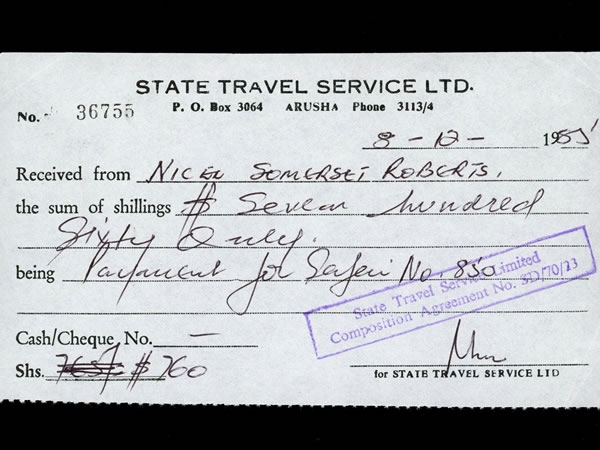 STATE TRAVEL SERVICE LTD.
P. O. Box 3064 ARUSHA Phone 3113/4
No. 36755
8 - 12 - 1985
Received from NIGEL SOMERSET ROBERTS.
the sum of shillings $ Seven hundred
Sixty Only.
being Payment for Safari No. 850
State Travel Service Limited
Composition Agreement No. SD/70/23
Cash/Cheque No. —
Shs. $ 760
for STATE TRAVEL SERVICE LTD